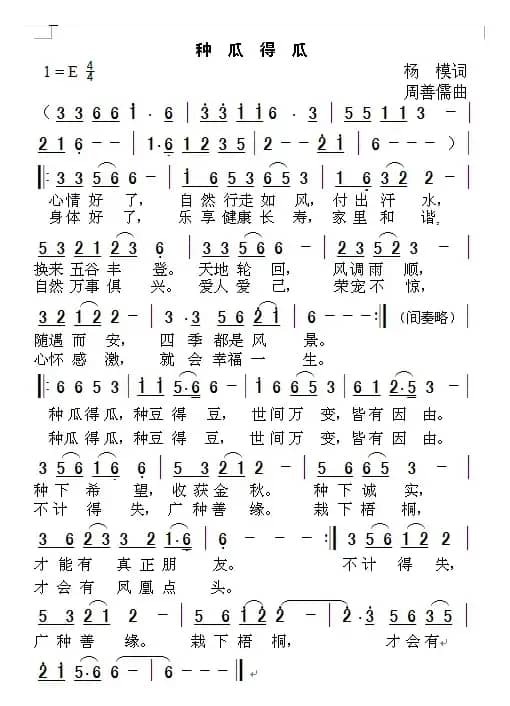 种 瓜 得 瓜
1=E 4/4
杨 模词
周善儒曲
（3 3 6 6 i · 6 | 3 3 i 6 6 · 3 | 5 5 1 1 3 - |
2 1 6 - - | 1·6 1 2 3 5 | 2 - - 2·i | 6 - - - ）|
‖: 3 3 5 6 6 - | i 6 5 3 6 5 3 | 1 6 3 2 2 - |
心情 好 了， 自 然 行走 如 风， 付 出 汗 水，
身体 好 了， 乐 享 健康 长 寿， 家 里 和 谐，
5 3 2 1 2 3 6 | 3 3 5 6 6 - | 3 2 3 5 5 - |
换来 五谷 丰 登。 天地 轮 回， 风调 雨 顺，
自然 万事 俱 兴。 爱人 爱 己， 荣宠 不 惊，
3 2 1 2 2 - | 3 · 3 5 6 2 i | 6 - - - :‖ （间奏略）
随遇 而 安， 四 季 都是 风 景。
心怀 感 激， 就 会 幸福 一 生。
‖: 6 6 5 3 | i i 5·6 6 | 1 6 6 5 3 | 6 1 2·5 3 |
种瓜得瓜，种豆 得 豆， 世间 万 变，皆有 因 由。
种瓜得瓜，种豆 得 豆， 世间 万 变，皆有 因 由。
3 5 6 1 6 6 | 5 3 2 1 2 - | 5 6 6 5 3 |
种 下 希 望， 收 获 金 秋。 种 下 诚 实，
不 计 得 失，广 种 善 缘。 栽 下 梧 桐，
3 6 2 3 3 2 1·6 | 6 - - - :‖ 3 5 6 1 2 2 |
才 能 有 真 正 朋 友。 不 计 得 失，
才 会 有 凤 凰 点 头。
5 3 2 1 2 | 5 6 i 2 - | 2·3 5 6 3 5 |
广 种 善 缘。 栽 下 梧 桐， 才 会 有
2 i 5·6 6 - | 6 - - - ‖